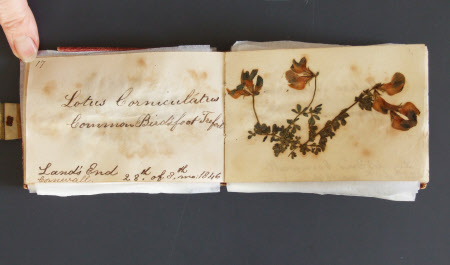 17
Lotus Corniculatus
Common Birdsfoot Trefoil
Land's End
Cornwall 28th of 8th mo 1846